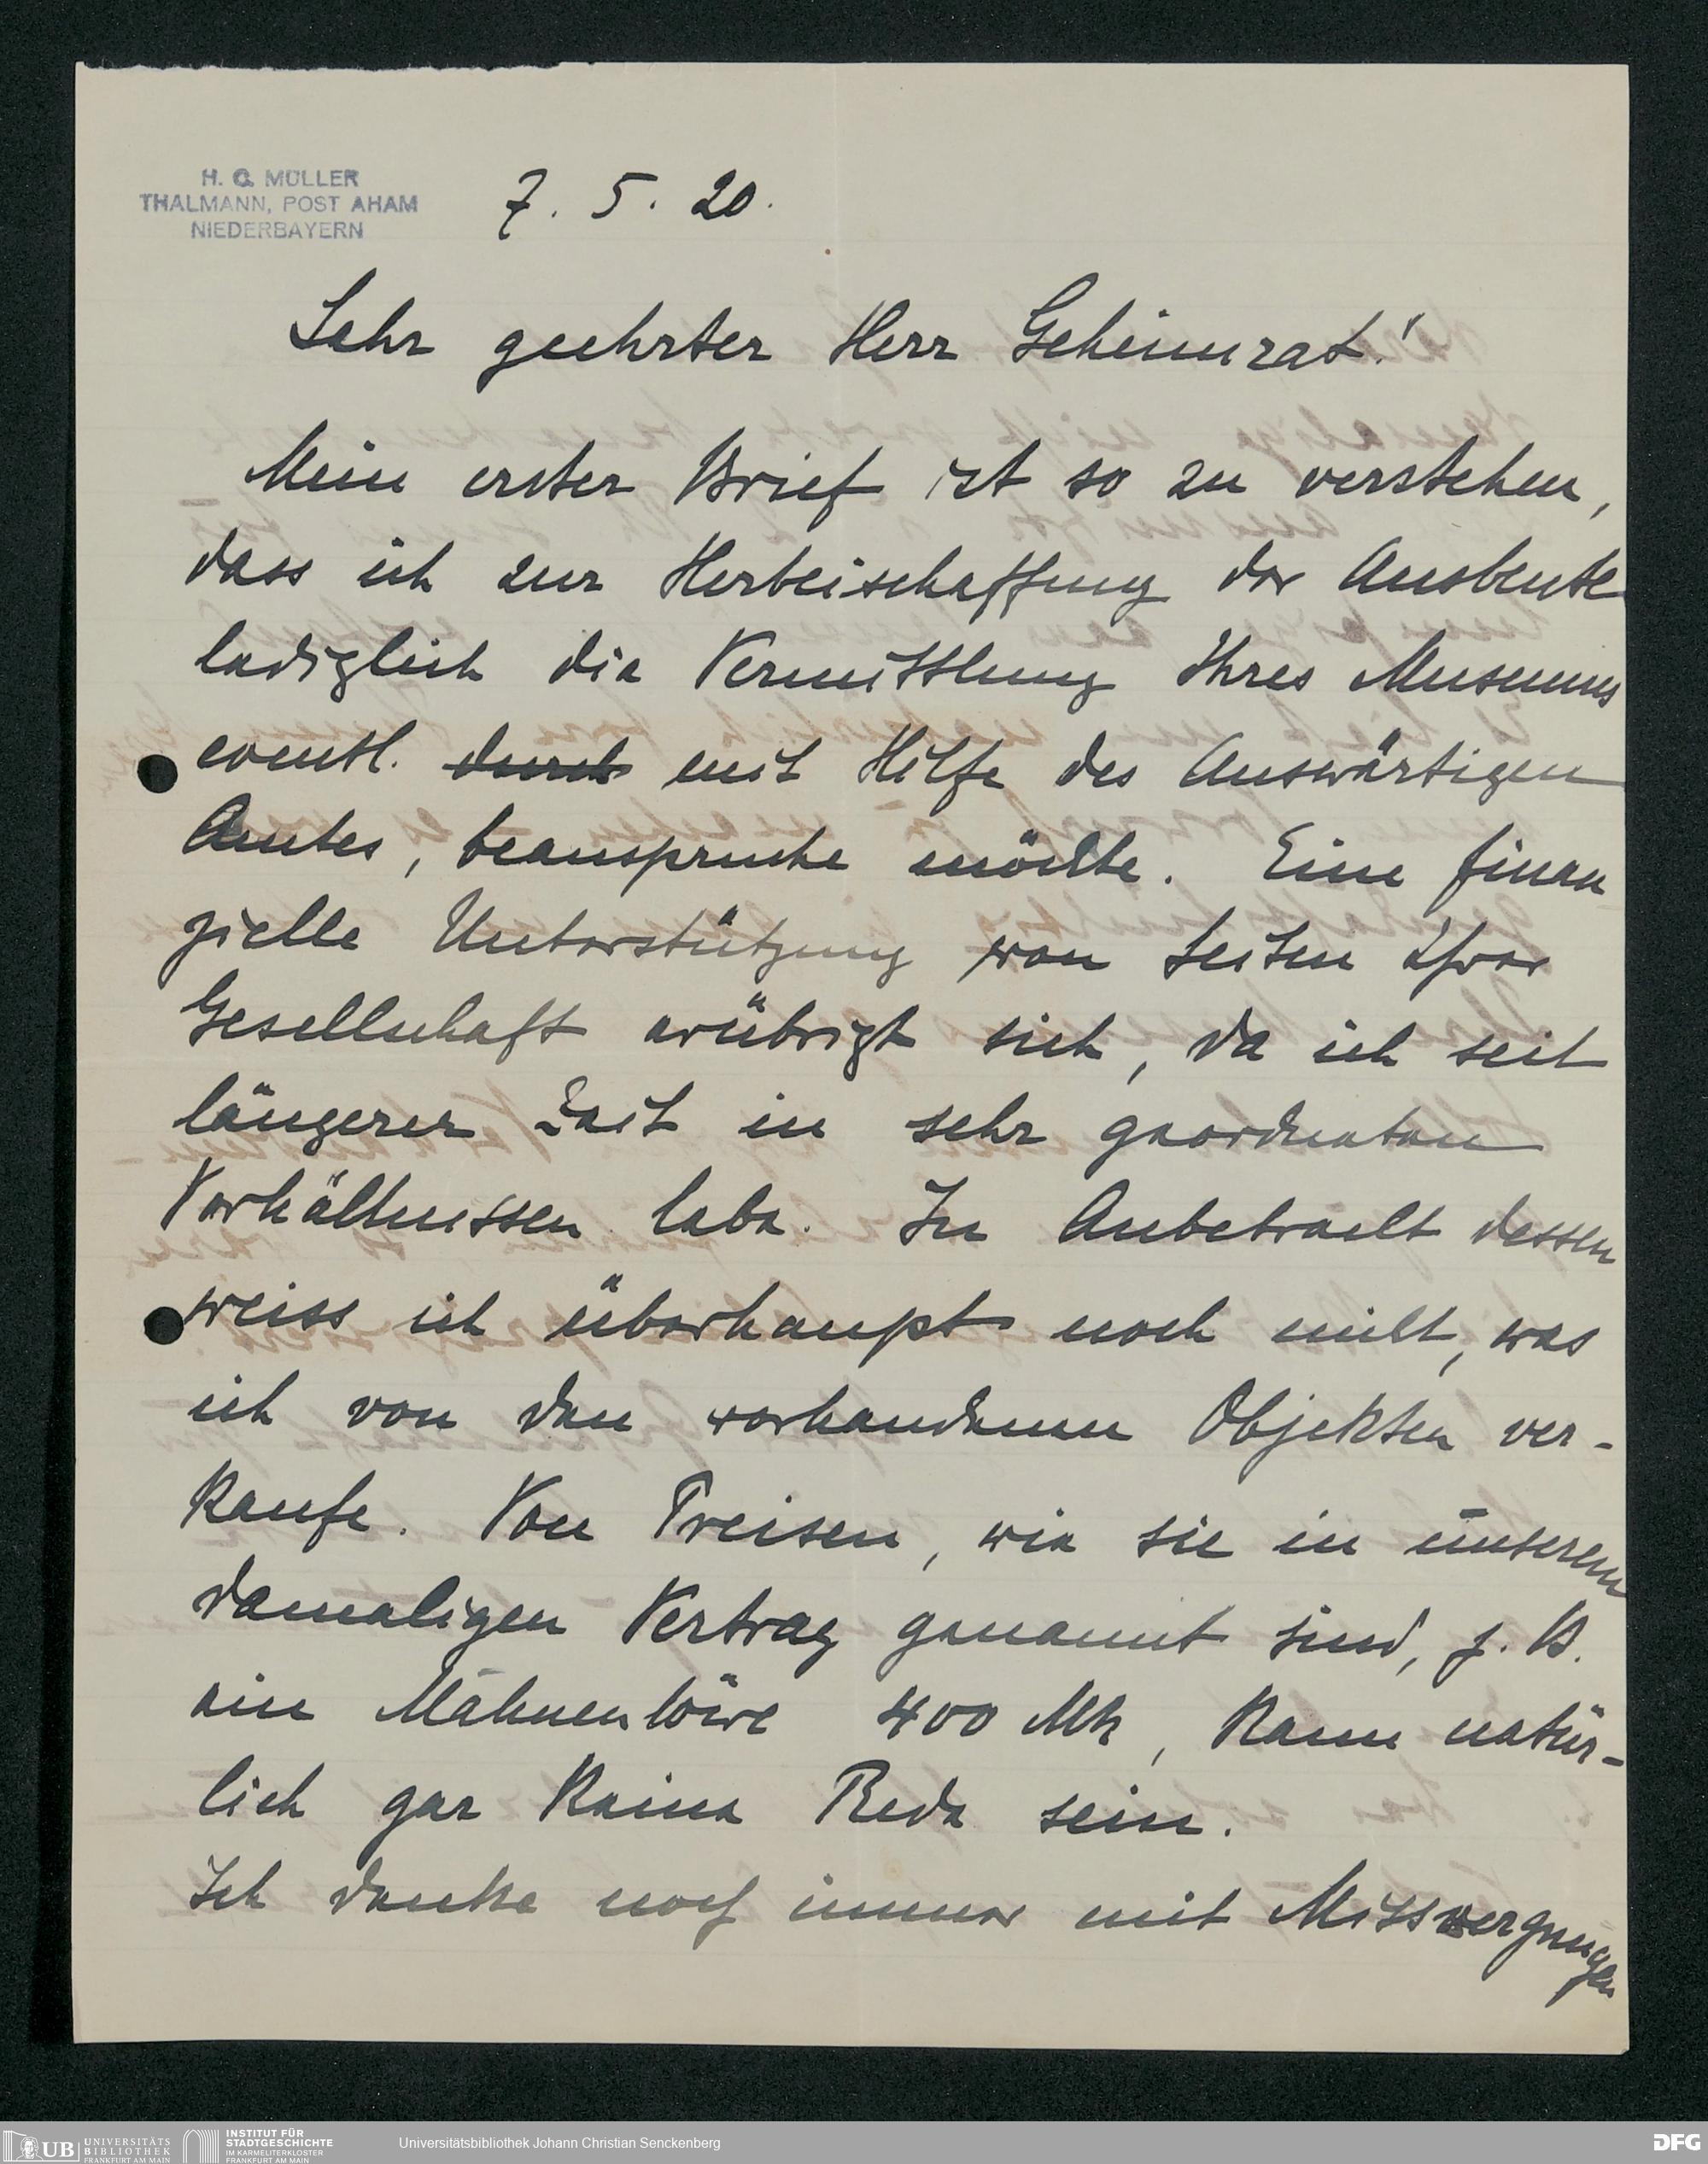 H. O. MÜLLER
THALMANN, POST AHAM
NIEDERBAYERN
7. 5. 20.
Sehr geehrter Herr Geheimrat!
Mein erster Brief ist so zu verstehen,
dass ich zur Herbeischaffung der Ausbeute
lediglich die Vermittlung Ihres Museums
eventl. durch mit Hilfe des Auswärtigen
Amtes, beanspruche möchte. Eine finan
zielle Unterstützung von seiten Ihrer
Gesellschaft erübrigt sich, da ich seit
längerer Zeit in sehr geordneten
Verhältnissen lebe. In Anbetracht dessen
weiss ich überhaupt noch nicht, was
ich von den vorhandenen Objekten ver-
kaufe. Von Preisen, wie sie in unserem
damaligen Vertrag genannt sind, z. B.
ein Mähnenlöwe 400 Mk, kann natür-
lich gar keine Rede sein.
Ich denke noch immer mit Missvergnügen
UB UNIVERSITÄTS
BIBLIOTHEK
FRANKFURT AM MAIN
INSTITUT FÜR
STADTGESCHICHTE
IM KARMELITERKLOSTER
FRANKFURT AM MAIN
Universitätsbibliothek Johann Christian Senckenberg
DFG